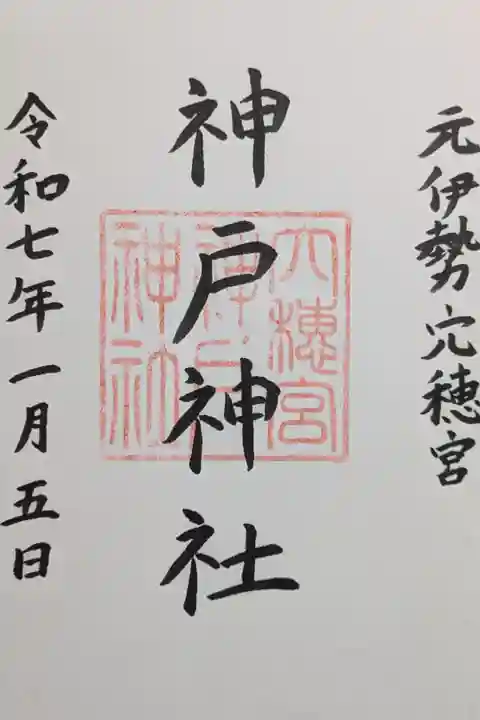 元伊勢穴穂宮
神戸神社
穴穂宮
神戸
神社
令和七年一月五日